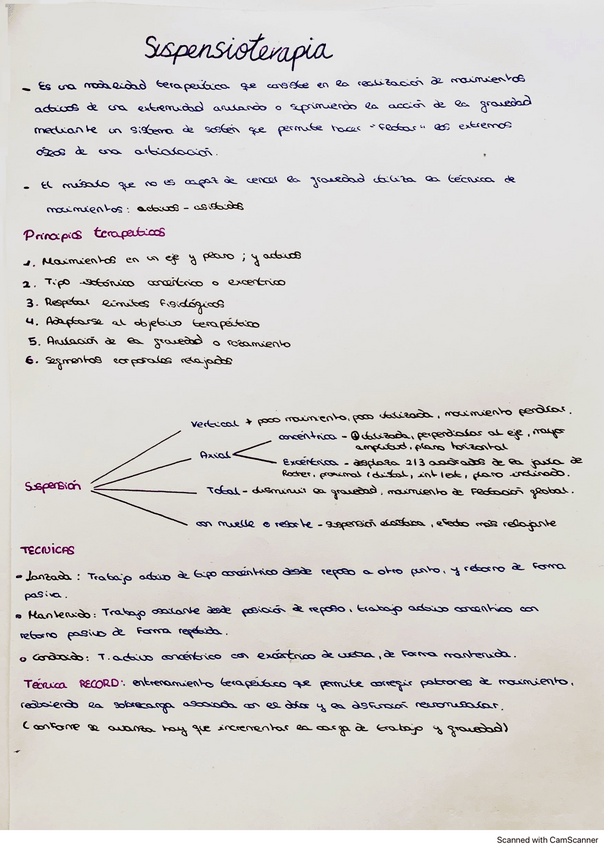 Suspensioterapia
- Es una modalidad terapéutica que consiste en la realización de movimientos
activos de una extremidad anulando o suprimiendo la acción de la gravedad
mediante un sistema de sostén que permite hacer "flotar" los extremos
óseos de una articulación.
- El músculo que no es capaz de vencer la gravedad utiliza la técnica de
movimientos: activos - asistidos
Principios terapeúticos
1. Movimientos en un eje y plano; y activos
2. Tipo isotónico concéntrico o excéntrico
3. Respetar límites fisiológicos
4. Adaptarse al objetivo terapéutico
5. Anulación de la gravedad o rozamiento
6. Segmentos corporales relajados
Suspensión
Vertical → poco movimiento, poco utilizada, movimiento pendular.
Axial
concéntrica - utilizada, perpendicular al eje, mayor
amplitud, plano horizontal
Excéntrica - desplaza 2/3 cuadrados de la jaula de
Rocher, proximal/distal, int/ext, plano inclinado.
Total - disminuir la gravedad, movimiento de flotación global.
con muelle o resorte - suspensión elástica, efecto más relajante
TECNICAS
- Lanzada: Trabajo activo de tipo concéntrico desde reposo a otro punto, y retorno de forma
pasiva.
• Mantenido: Trabajo oscilante desde posición de reposo, trabajo activo concéntrico con
retorno pasivo de forma repetida.
• Conducido: T. activo concéntrico con excéntrico de vuelta, de forma mantenida.
Técnica RECORD: entrenamiento terapéutico que permite corregir patrones de movimiento,
reduciendo la sobrecarga asociada con el dolor y la disfunción neuromuscular.
(conforme se avanza hay que incrementar la carga de trabajo y gravedad)
Scanned with CamScanner